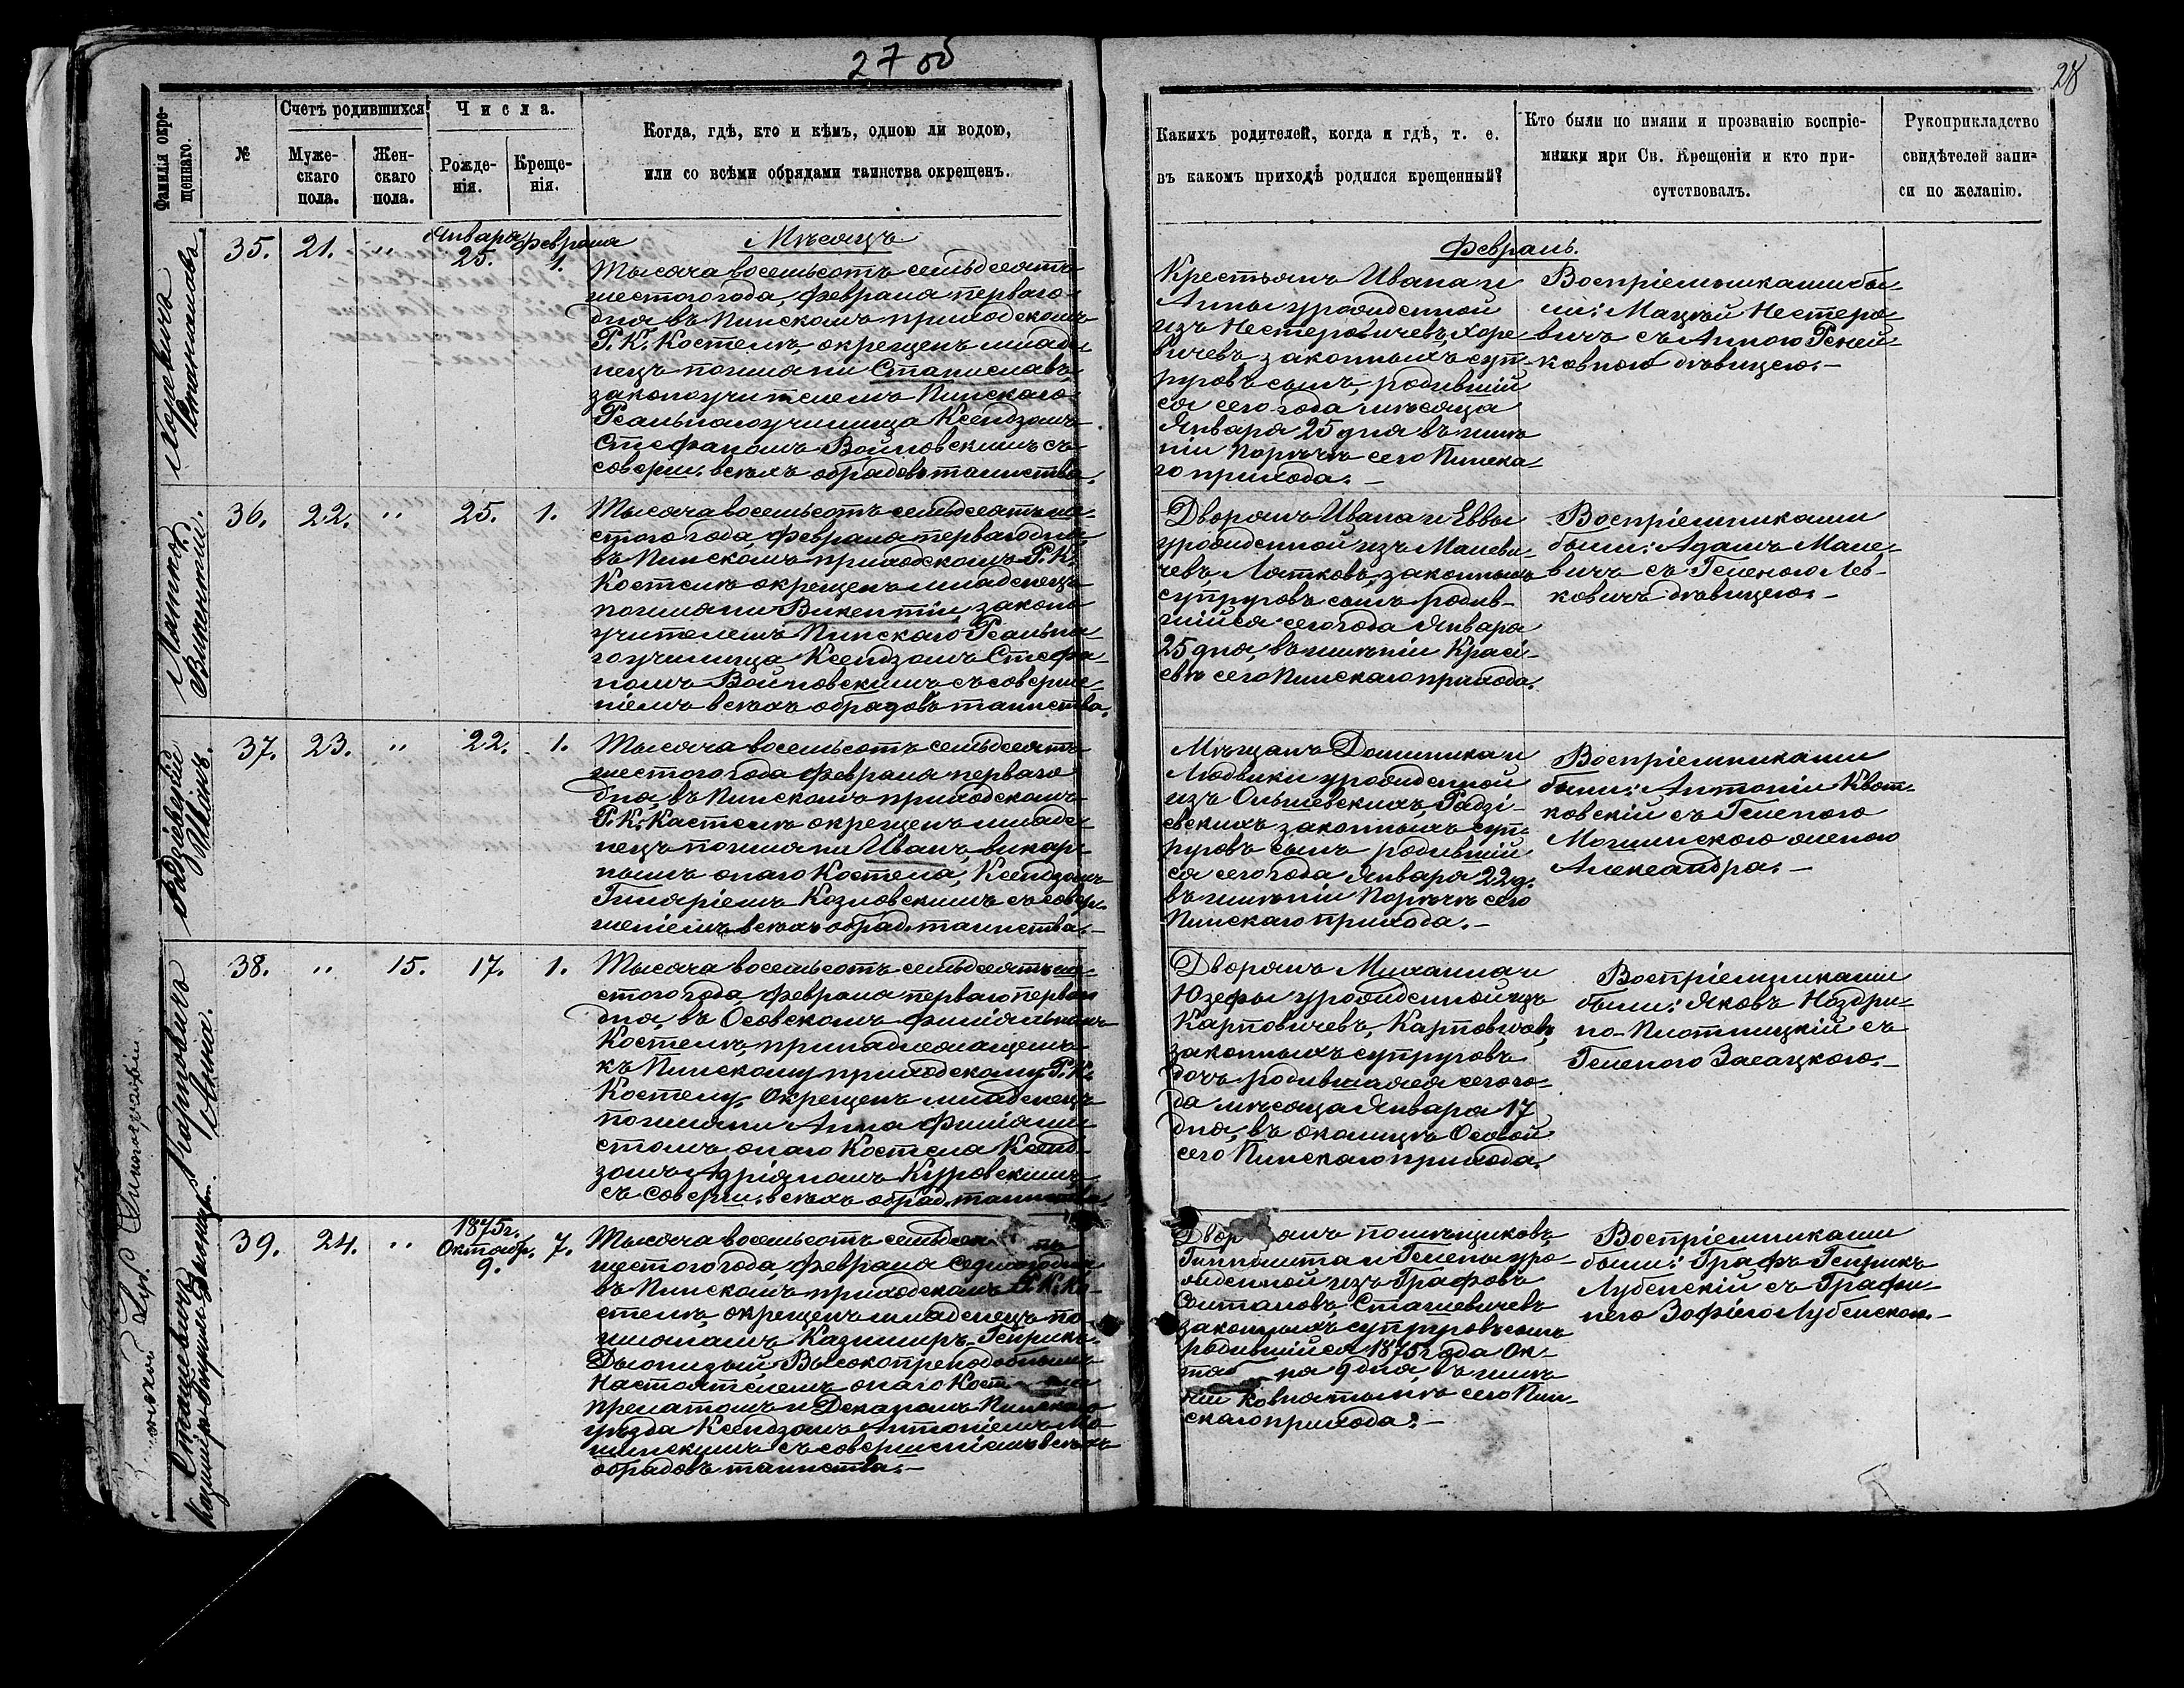 27 об
28
Фамилія окре-
щеннаго.
№
Счетъ родившихся
Муже-
скаго
пола.
Жен-
скаго
пола.
Числа.
Рожде-
нія.
Креще-
нія.
Когда, гдѣ, кто и кѣмъ, одною ли водою,
или со всѣми обрядами таинства окрещенъ.
Каких родителей, когда и гдѣ, т. е.
въ какомъ приходѣ родился крещенный?
Кто были по имяни и прозванію воспріе-
мники при Св. Крещеніи и кто при-
сутствовалъ.
Рукоприкладство
свидѣтелей запи-
си по желанію.
Станиславъ
35. 21. „ Января 25. Февраля 1.
Мѣсяцъ
Тысяча восемьсотъ семьдесятъ
шестого года, Февраля перваго
дня въ Пинскомъ приходскомъ
Р. К. Костелѣ, окрещенъ младе-
нецъ по имяни Станиславъ
законоучителемъ Пинскаго
Реальнаго училища Ксендзомъ
Стефаномъ Войновскимъ съ
соверш. всѣхъ обрядовъ таинства.
Февраль.
Крестьянъ Ивана и
Анны урожденной
изъ Нестеровичевъ, Хоре-
вичевъ законныхъ суп-
руговъ сынъ, родивший
ся сего года мѣсяца
Января 25 дня въ имѣ
ніи Порѣчъѣ сего Пинска-
го прихода. –
Воспріемниками бы-
ли: Мацѣй Нестеро-
вичъ съ Анною
ковною дѣвицею. –
Викентій.
36. 22. „ 25. 1.
Тысяча восемьсотъ семьдесятъ ше-
стого года, Февраля перваго дня
въ Пинскомъ приходскомъ Р. К.
Костелѣ окрещенъ младенецъ
по имяни Викентій, законо
учителемъ Пинскаго Реальна
го училища Ксендзомъ Стефа-
номъ Войновскимъ съ соверше-
ніемъ всѣхъ обрядовъ таинства.
Дворянъ Ивана и Еввы
урожденной изъ Малеви-
чевъ, законныхъ
супруговъ сынъ родив-
шійся сего года Января
25 дня, въ имѣніи Красі-
евѣ сего Пинскаго прихода.
Воспріемниками
были: Адамъ Мале-
вичъ съ Геленою Лев-
ковичъ дѣвицею. –
Радзіевскій
Иванъ.
37. 23. „ 22. 1.
Тысяча восемьсотъ семьдесятъ
шестого года Февраля перваго
дня, въ Пинскомъ приходскомъ
Р. К. Костелѣ окрещенъ младе-
нецъ по имяни Иванъ, викар-
нымъ онаго Костела, Ксендзомъ
Гиляріемъ Козловскимъ съ совер-
шеніемъ всѣхъ обряд. таинства. –
Мѣщанъ Доминика и
Людвики урожденной
изъ Ольшевскихъ, Радзі-
евскихъ законныхъ суп-
руговъ сынъ родившій
ся сего года Января 22 д.
въ имѣніи Порѣчъѣ сего
Пинскаго прихода. –
Воспріемниками
были: Антоній
ковскій съ Геленою
Могилинскою женою
Александра. –
Карповичъ
Анна.
38. „ 15. 17. 1.
Тысяча восемьсотъ семьдесятъ ше-
стого года Февраля перваго перваго
дня, въ Осовскомъ филіальномъ
Костелѣ, принадлежащемъ
къ Пинскому приходскому Р. К.
Костелу, Окрещенъ младенецъ
по имяни Анна филіали
стомъ онаго Костела Ксенд
зомъ Адріаномъ Куровскимъ
съ соверш. всѣхъ обряд. таинства.
Дворянъ Михаила и
Юзефы урожденной изъ
Карповичевъ, Карповичевъ,
законныхъ супруговъ
дочь родившаяся сего го-
да мѣсяца Января 17
дня, въ околицѣ Осовой
сего Пинскаго прихода.
Воспріемниками
были: Яковъ Ноздри-
но-Плотницкій съ
Геленою Засацкою. –
39. 24. „ 1875 г. Октябр. 9. 7.
Тысяча восемьсотъ
шестого года, Февраля седмаго дня
въ Пинскомъ приходскомъ Р. К. Ко-
стелѣ, окрещенъ младенецъ по
имянамъ Казимиръ-Генрикъ-
Діонизый, Высокопреподобнымъ
Настоятелемъ онаго
прелатомъ и Деканомъ Пинскаго
уѣзда Ксендзомъ Антоніемъ Мо
шинскимъ съ совершеніемъ всѣхъ
обрядовъ таинства. –
помѣщиковъ,
Гипполита и Гелены уро-
жденной изъ Графовъ
законныхъ супруговъ сынъ
родившійся 1875 года Ок-
на 9 дня, въ имѣ
ніи Ковнятынѣ сего Пин-
скаго прихода. –
Воспріемниками
были: Графъ Генрикъ
Лубенскій съ Графи-
нею Зофіею Лубенскою. –